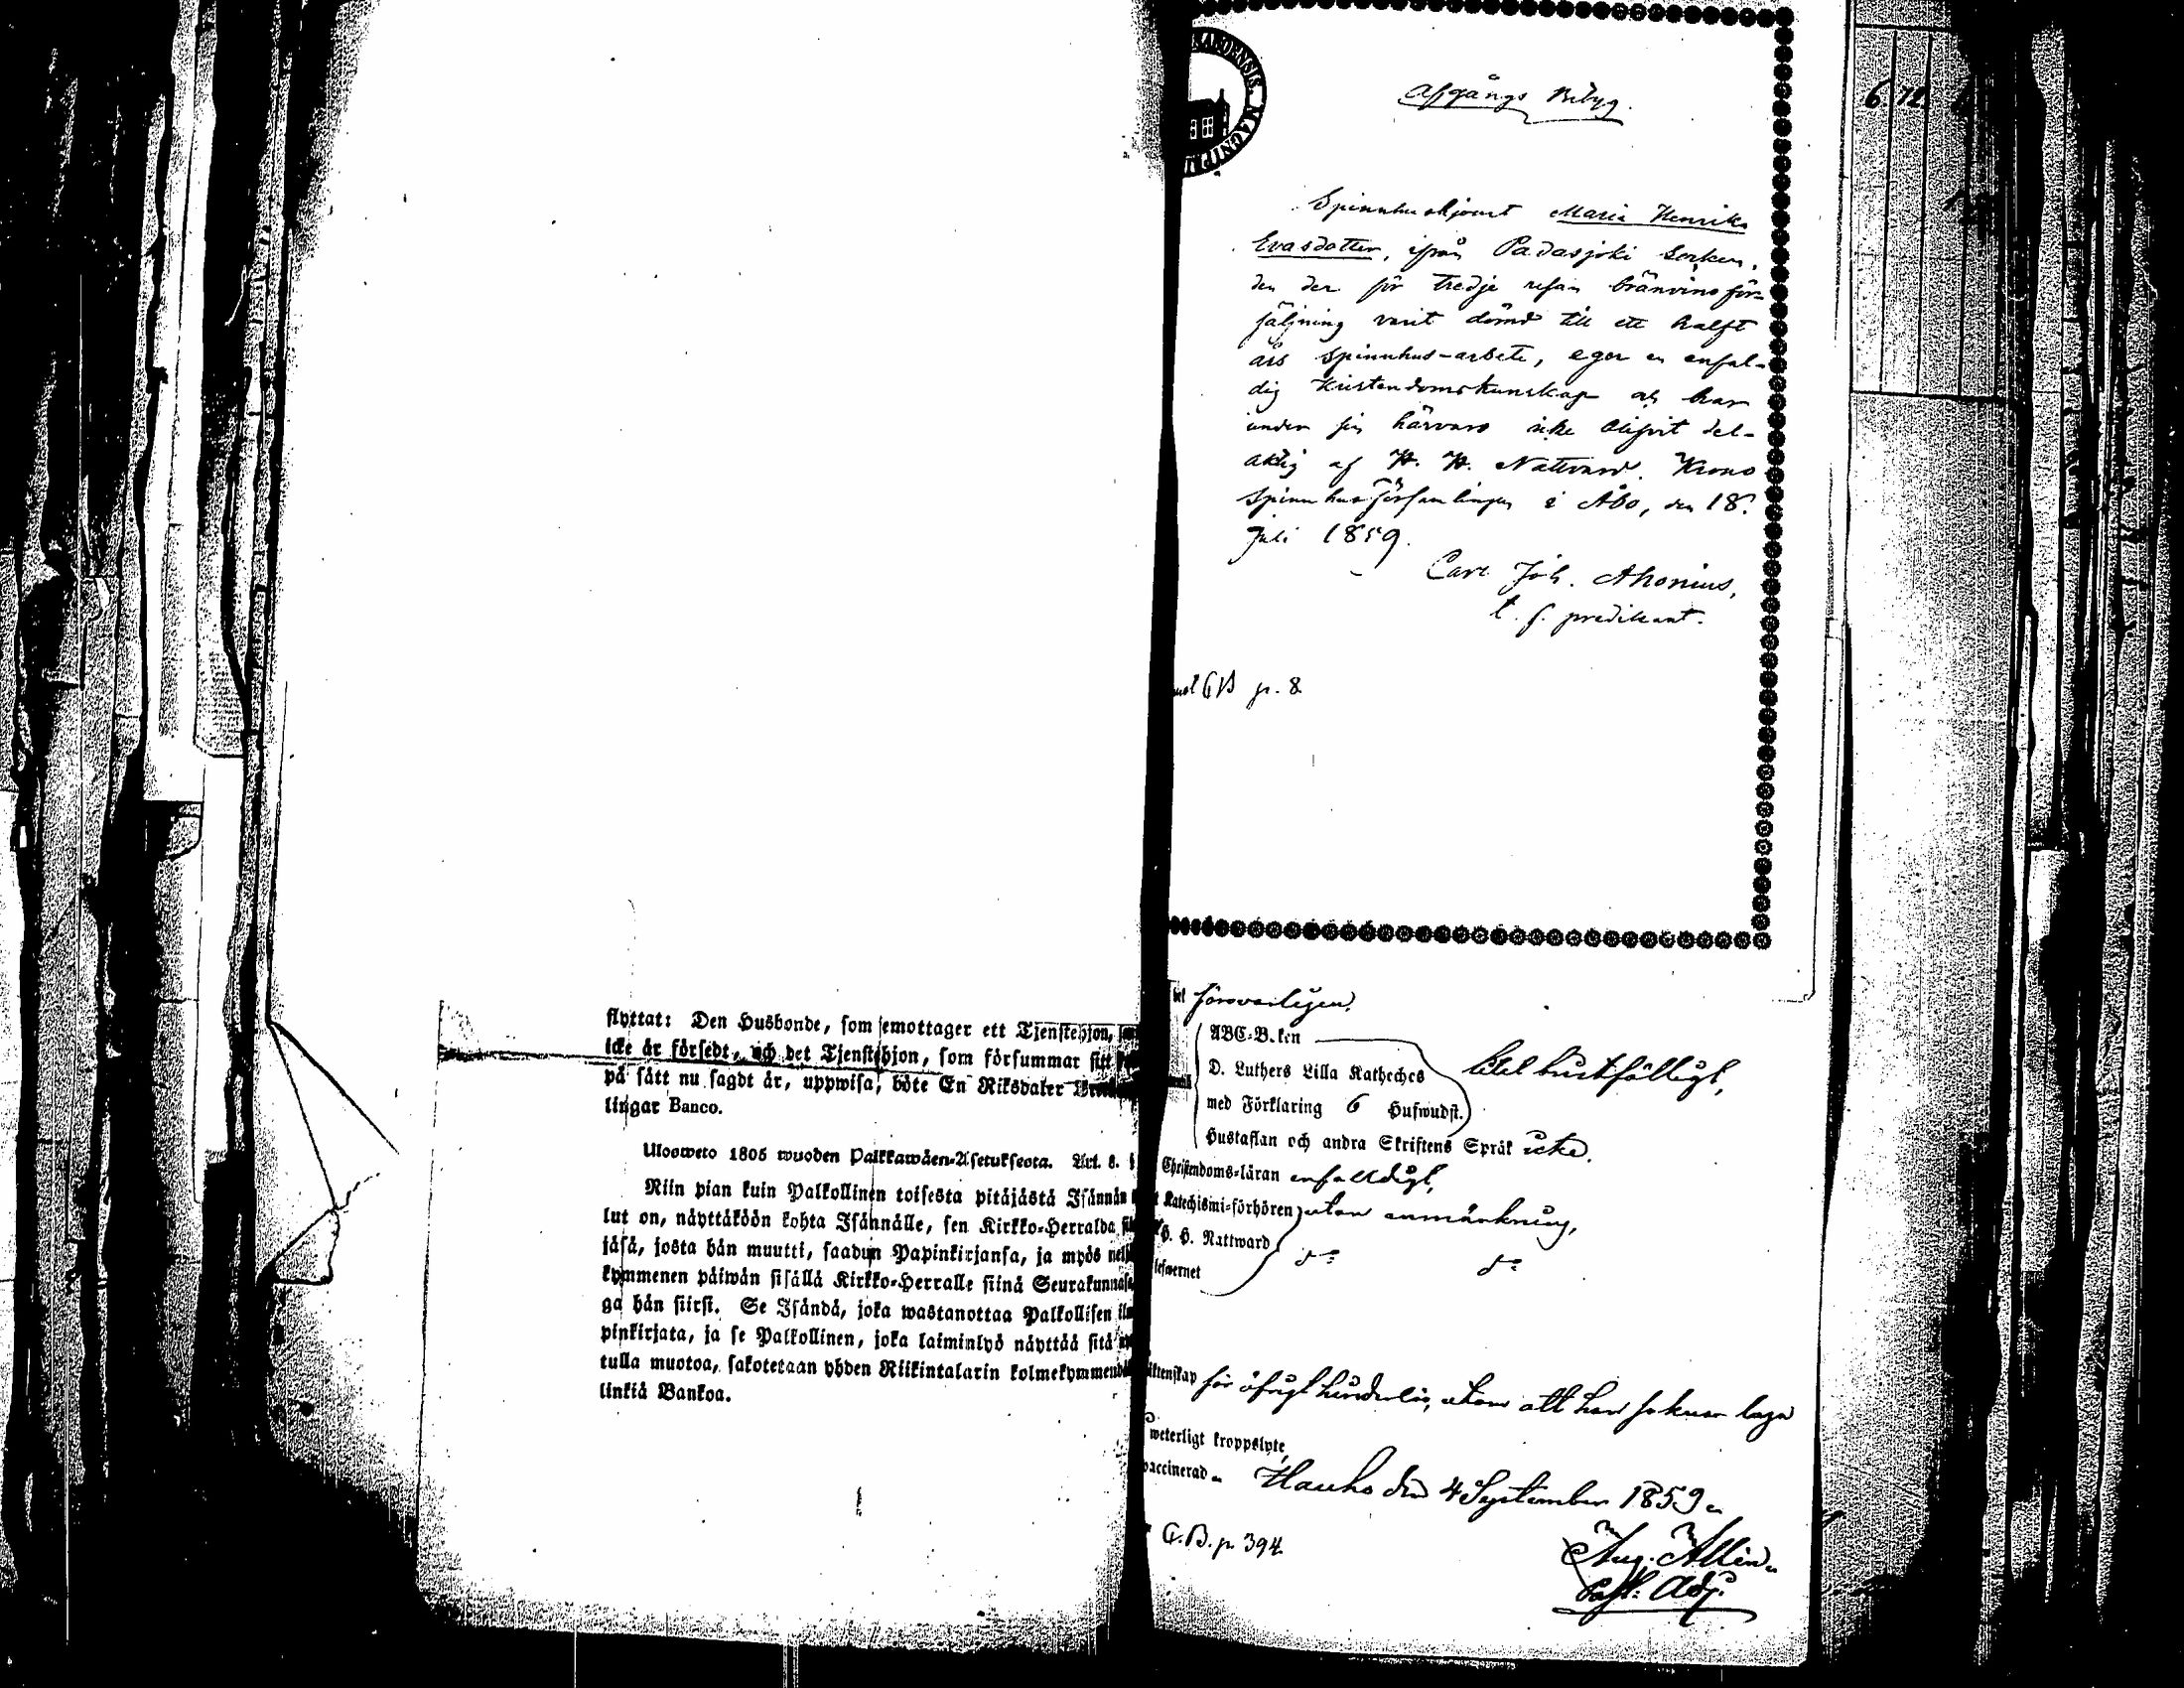 flyttat: Den Husbonde, som emottager ett Tjenstehjon,
icke är försedt, och det Tjenstehjon, som försummar sitt
på sätt nu sagdt är, uppwisa, böte En Riksdaler
lingar Banco.
Ulosweto 1805 wuoden Palkkawäen-Asetuksesta. Art. 8. §
Niin pian kuin Palkollinen toisesta pitäjästä Isännän
lut on, näyttäköön kohta Isännälle, sen Kirkko-Herralda
jäsä, josta hän muutti, saadun Papinkirjansa, ja myös nel
kymmenen päiwän sisällä Kirkko-Herralle siinä Seurakunnasa
ga hän siirsi. Se Isändä, joka wastanottaa Palkollisen ilm
pinkirjata, ja se Palkollinen, joka laiminlyö näyttää sitä
tulla muotoa, sakotetaan yhden Riikintalarin kolmekymmendä
linkiä Bankoa.
Afgångs Betyg.
Spinnhushjonet Maria Henriks
Evasdotter, ifrån Padasjoki Socken,
den der för tredje resan bränvins för-
säljning varit dömd till ett halft
års Spinnhus-arbete, eger en enfal-
dig Kristendomskunskap och har
under sin härvaro icke blifvit del-
aktig af H. H. Nattvard. Krono
Spinnhusförsamlingen i Åbo, den 18
Juli 1859.
Carl Joh. Ahonius,
t. f. predikant.
p. 8
6 72
försvarligen.
ABC-B.ken
D. Luthers Lilla Katheches
med Förklaring 6 Hufwudst.
Hustaflan och andra Skriftens Språk icke.
Christendoms-läran enfalldigt,
Katechismi-förhören utan anmärkning,
H. H. Nattward
lefwernet
äktenskap för öfrigt hinderlös, utom att han saknar laga
weterligt kroppslyte
vaccinerad Hauho den 4 September 1859
C.B. p. 394
Aug. Allén
Past. Adj.